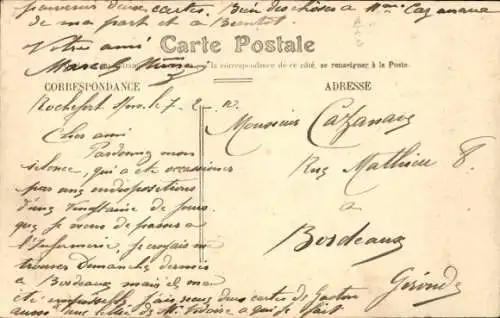 parvenir deux cartes. Bien des choses à Mme Cazanave
de ma part et à Bientôt
Votre ami
Marcel
Carte Postale
la correspondance de ce côté, se renseigner à la Poste.
CORRESPONDANCE
ADRESSE
Rochefort le 7
Monsieur Cazanave
Rue Mathieu 8.
à
Bordeaux
Gironde
Cher ami
Pardonnez mon
silence, qui a été occasionné
par une indisposition
d'une vingtaine de jours
que je viens de passer à
l'Infirmerie, je croyais me
trouver Dimanche dernier
à Bordeaux mais il m'a
été impossible, fais deux cartes de
aussi une de Mr à qui je fait